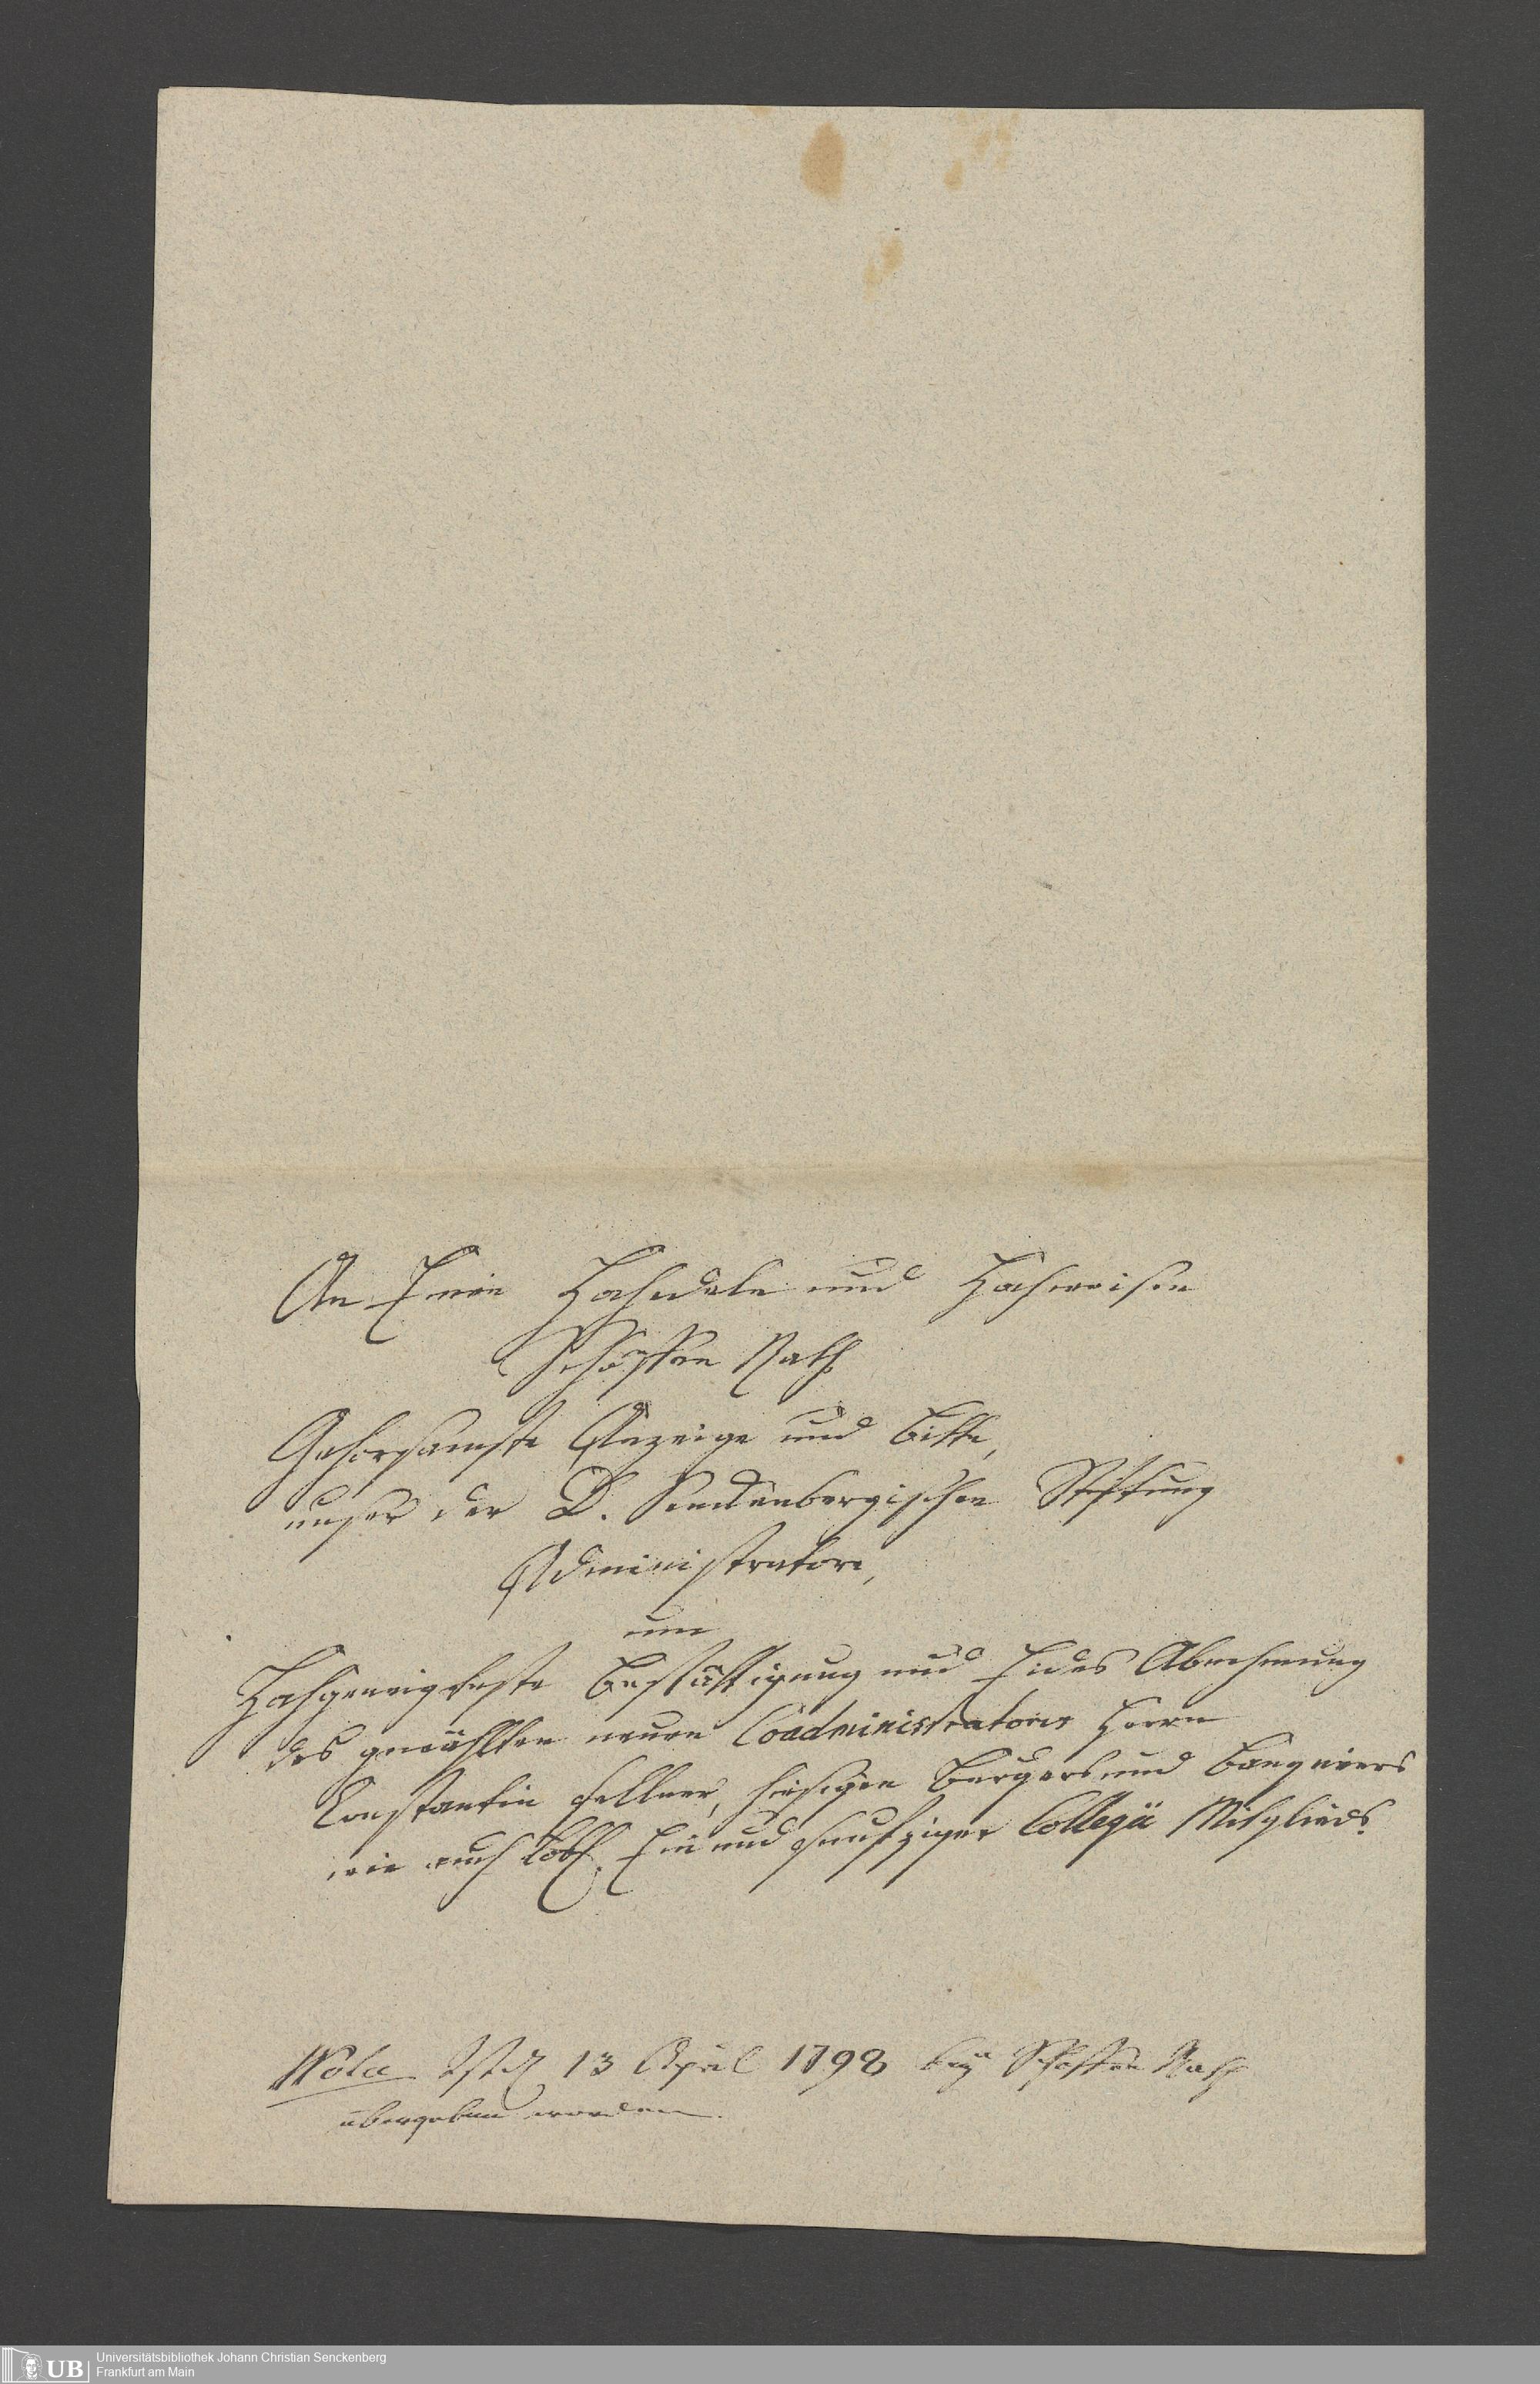 An Einen Hochedeln und Hochweisen
Schöffen Rath
Gehorsamste Anzeige und Bitte,
unser der D. Senckenbergischen Stiftung
Administratorn,
um
Hochgeneigteste Bestättigung und Eides Abnehmung
des gewählten neuen Coadministratoris Herrn
Constantin Fellner, hiesigen Burgers und Banquiers
wie auch Löbl. Ein und funfziger Collegii Mitglieds.
Nota Ist d 13 April 1798 bey Schöffen Rath
übergeben worden.
UB Universitätsbibliothek Johann Christian Senckenberg
Frankfurt am Main